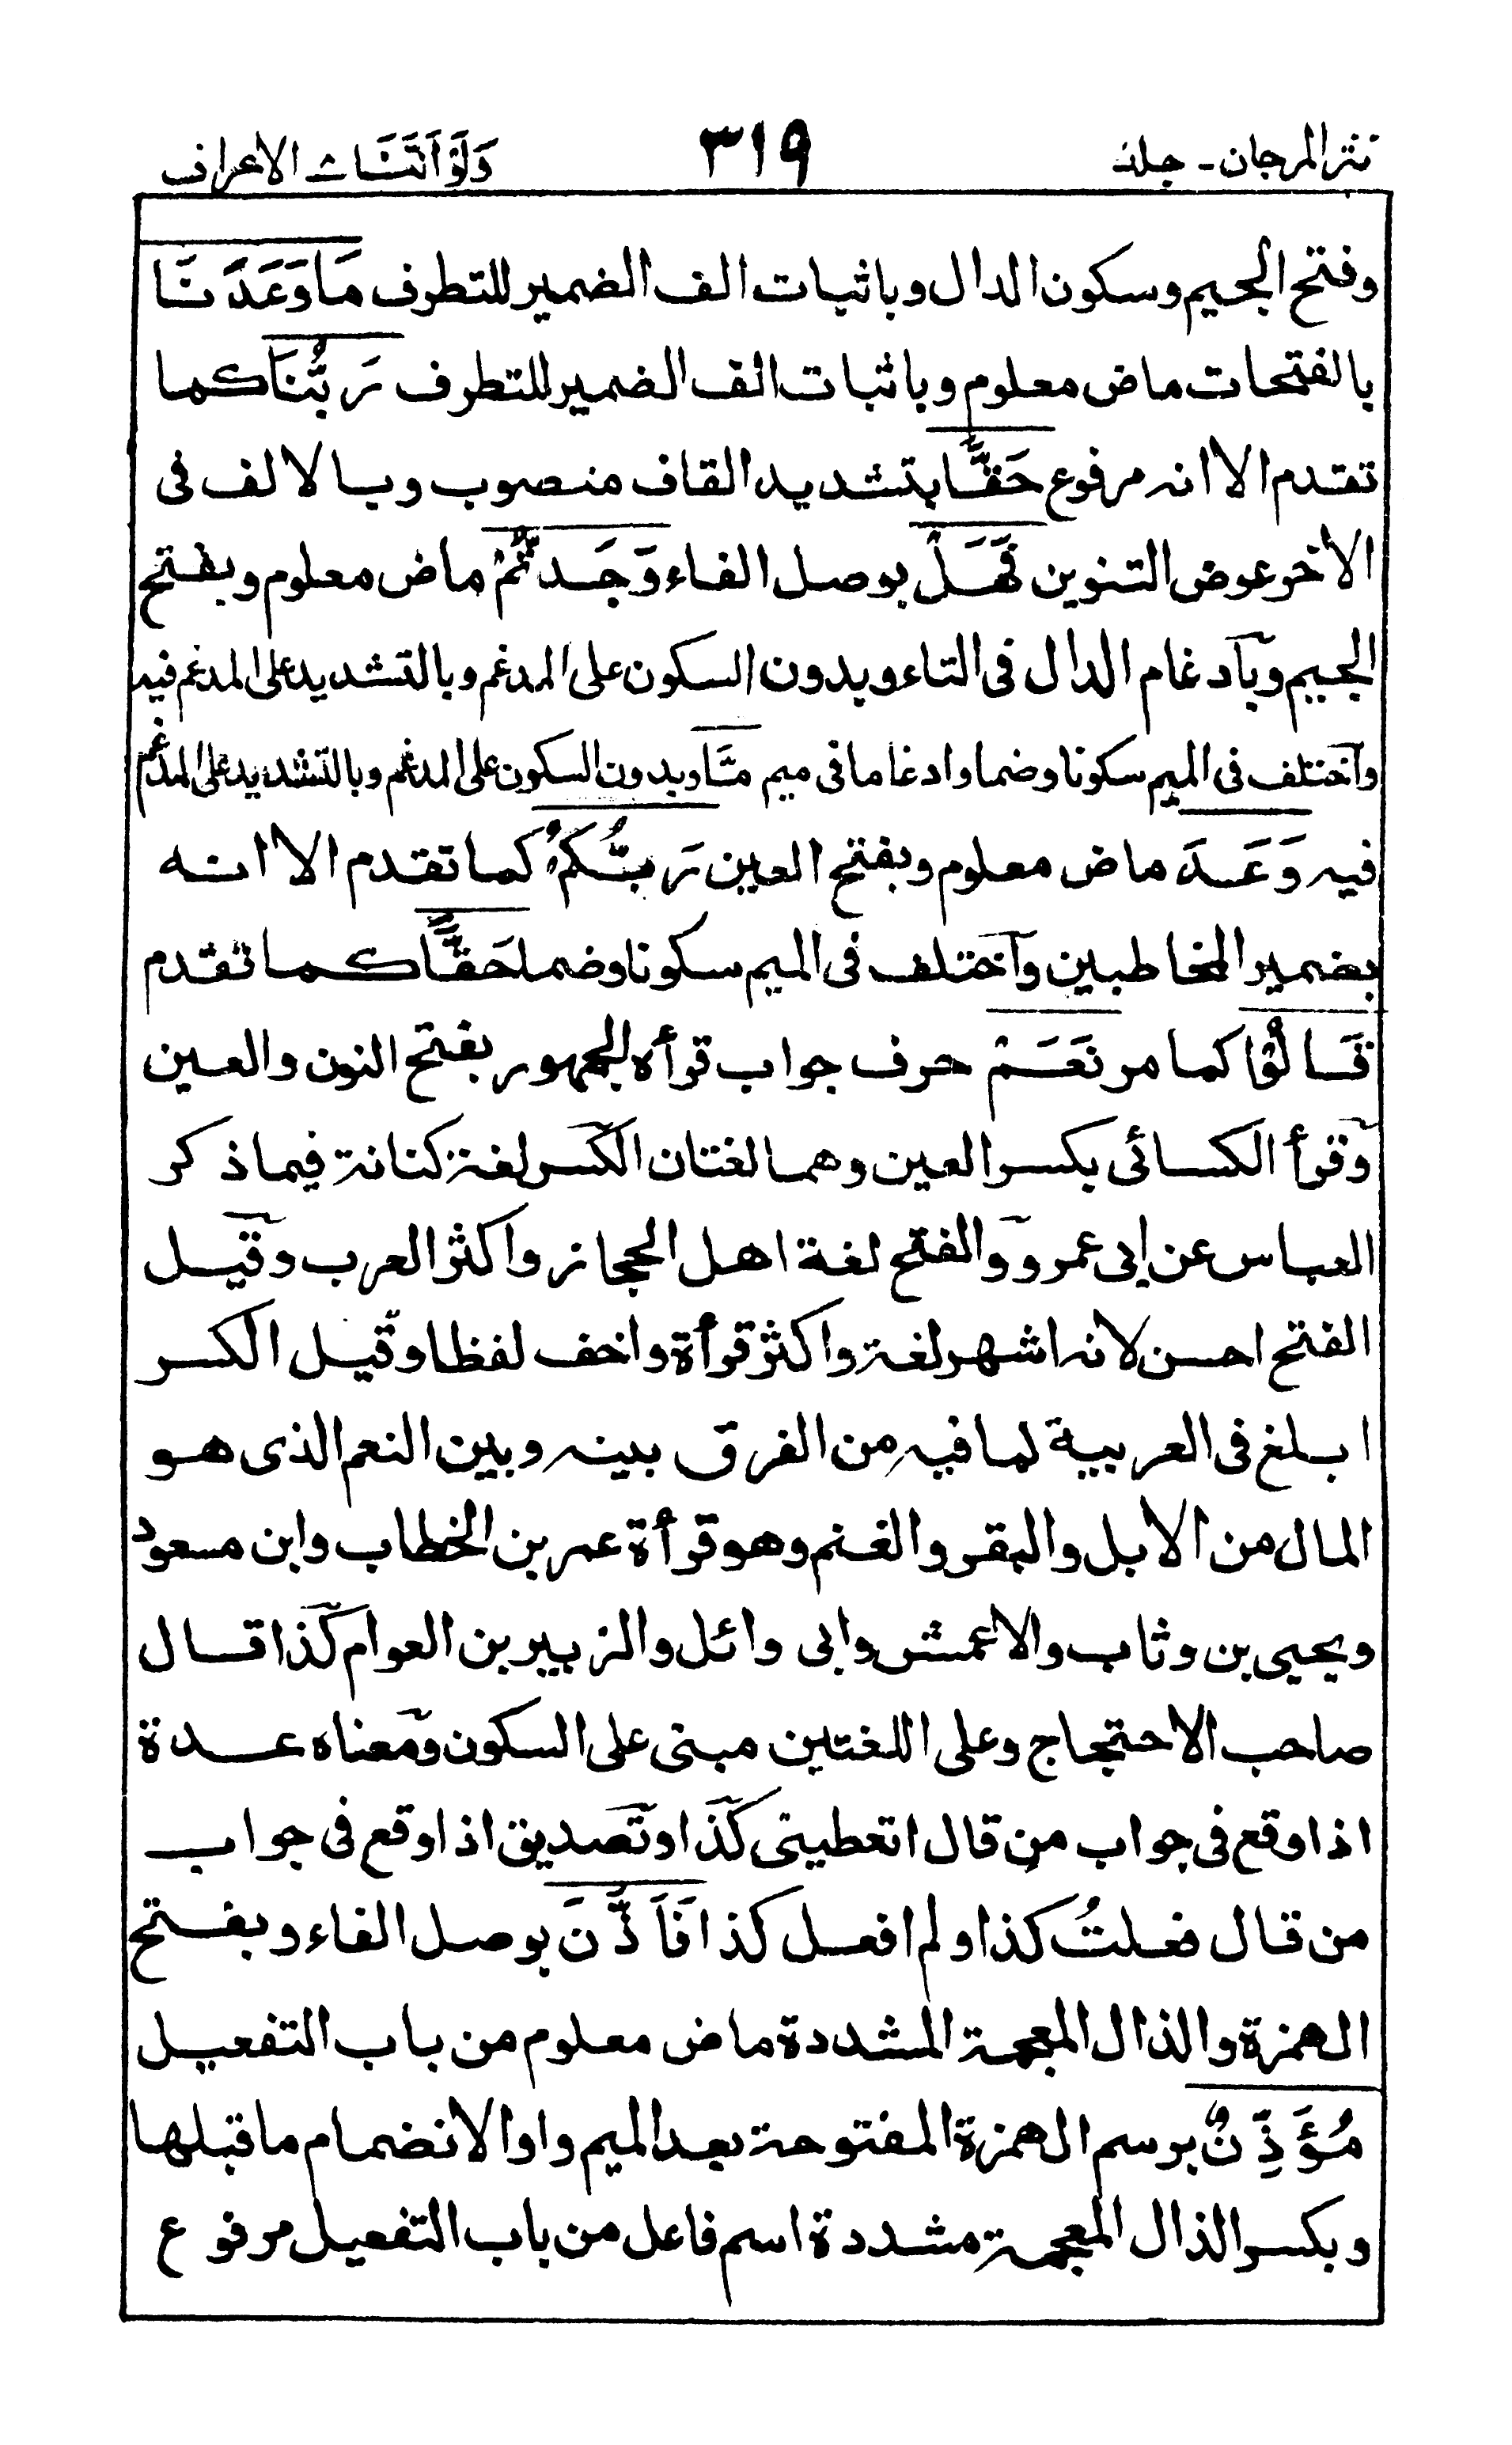 نثر المرجان - جلد ٣١٩ ولواننا ٨ الاعراف
وفتح الجيم وسكون الدال وباثبات الف الضمير للتطرف مَا وَعَدَنَا
بالفتحات ماض معلوم وباثبات الف الضمير للتطرف رَبُّنَا كما
تقدم الا انه مرفوع حَقًّا بتشديد القاف منصوب وبالالف فى
الاخر عوض التنوين فَهَلْ بوصل الفاء وَجَدتُّمْ ماض معلوم وبفتح
الجيم وبادغام الدال فى التاء وبدون السكون على المدغم وبالتشديد على المدغم فيه
واختلف فى الميم سكونا وضما وادغاما فى ميم مَّا وبدون السكون على المدغم وبالتشديد على المدغم
فيه وَعَدَ ماض معلوم وبفتح العين رَبُّكُمْ كما تقدم الا انه
بضمير المخاطبين واختلف فى الميم سكونا وضما حَقًّا كما تقدم
قَالُوْا كما مر نَعَمْ حرف جواب قرأه الجمهور بفتح النون والعين
وقرأ الكسائى بكسر العين وهما لغتان الكسر لغة كنانة فيما ذكر
العباس عن ابى عمرو والفتح لغة اهل الحجاز واكثر العرب وقيل
الفتح احسن لانه اشهر لغة واكثر قرأة واخف لفظا وقيل الكسر
ابلغ فى العربية لما فيه من الفرق بينه وبين النعم الذى هو
المال من الابل والبقر والغنم وهو قرأة عمر بن الخطاب وابن مسعود
ويحيى بن وثاب والاعمش وابى وائل والزبير بن العوام كذا قال
صاحب الاحتجاج وعلى اللغتين مبنى على السكون ومعناه عدة
اذا وقع فى جواب من قال اتعطينى كذا وتصديق اذا وقع فى جواب
من قال فعلتُ كذا ولم افعل كذا فَاَذَّنَ بوصل الفاء وبفتح
الهمزة والذال المعجمة المشددة ماض معلوم من باب التفعيل
مُؤَذِّنٌ برسم الهمزة المفتوحة بعد الميم واوا لانضمام ما قبلها
وبكسر الذال المعجمة مشددة اسم فاعل من باب التفعيل مرفوع